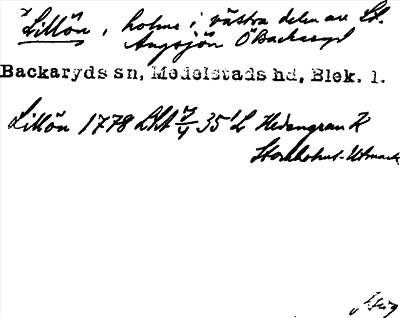 Lillön, holme i västra delen av St.
Angsjön Ö Backaryd
Backaryds sn, Medelstads hd, Blek. l.
Lillön 1778 Lht 7/4 35 L Hedengran K
Stockholms-Utmark